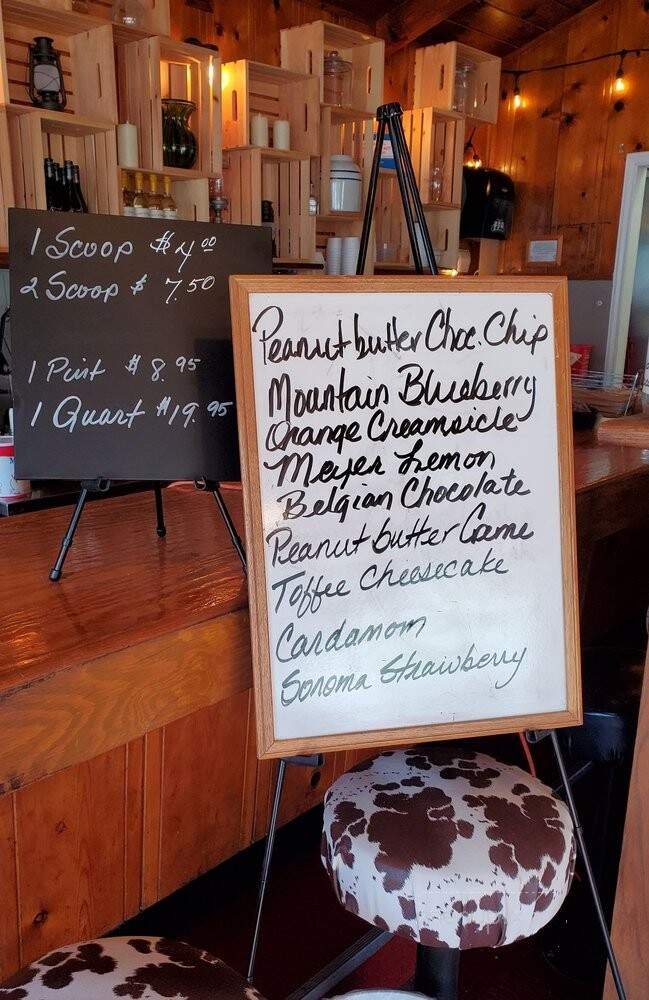 1 Scoop $4.00
2 Scoop $ 7.50
1 Pint $ 8.95
1 Quart $19.95
Peanut butter Choc. Chip
Mountain Blueberry
Orange Creamsicle
Meyer Lemon
Belgian Chocolate
Peanut butter Game
Toffee Cheesecake
Cardamom
Sonoma Strawberry